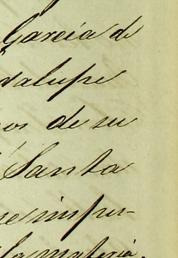 García de
dalupe
os de su
Santa
e impu-
la materia.